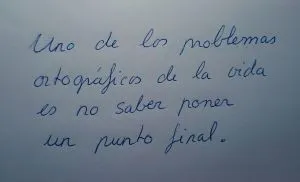 Uno de los problemas
ortográficos de la vida
es no saber poner
un punto final.